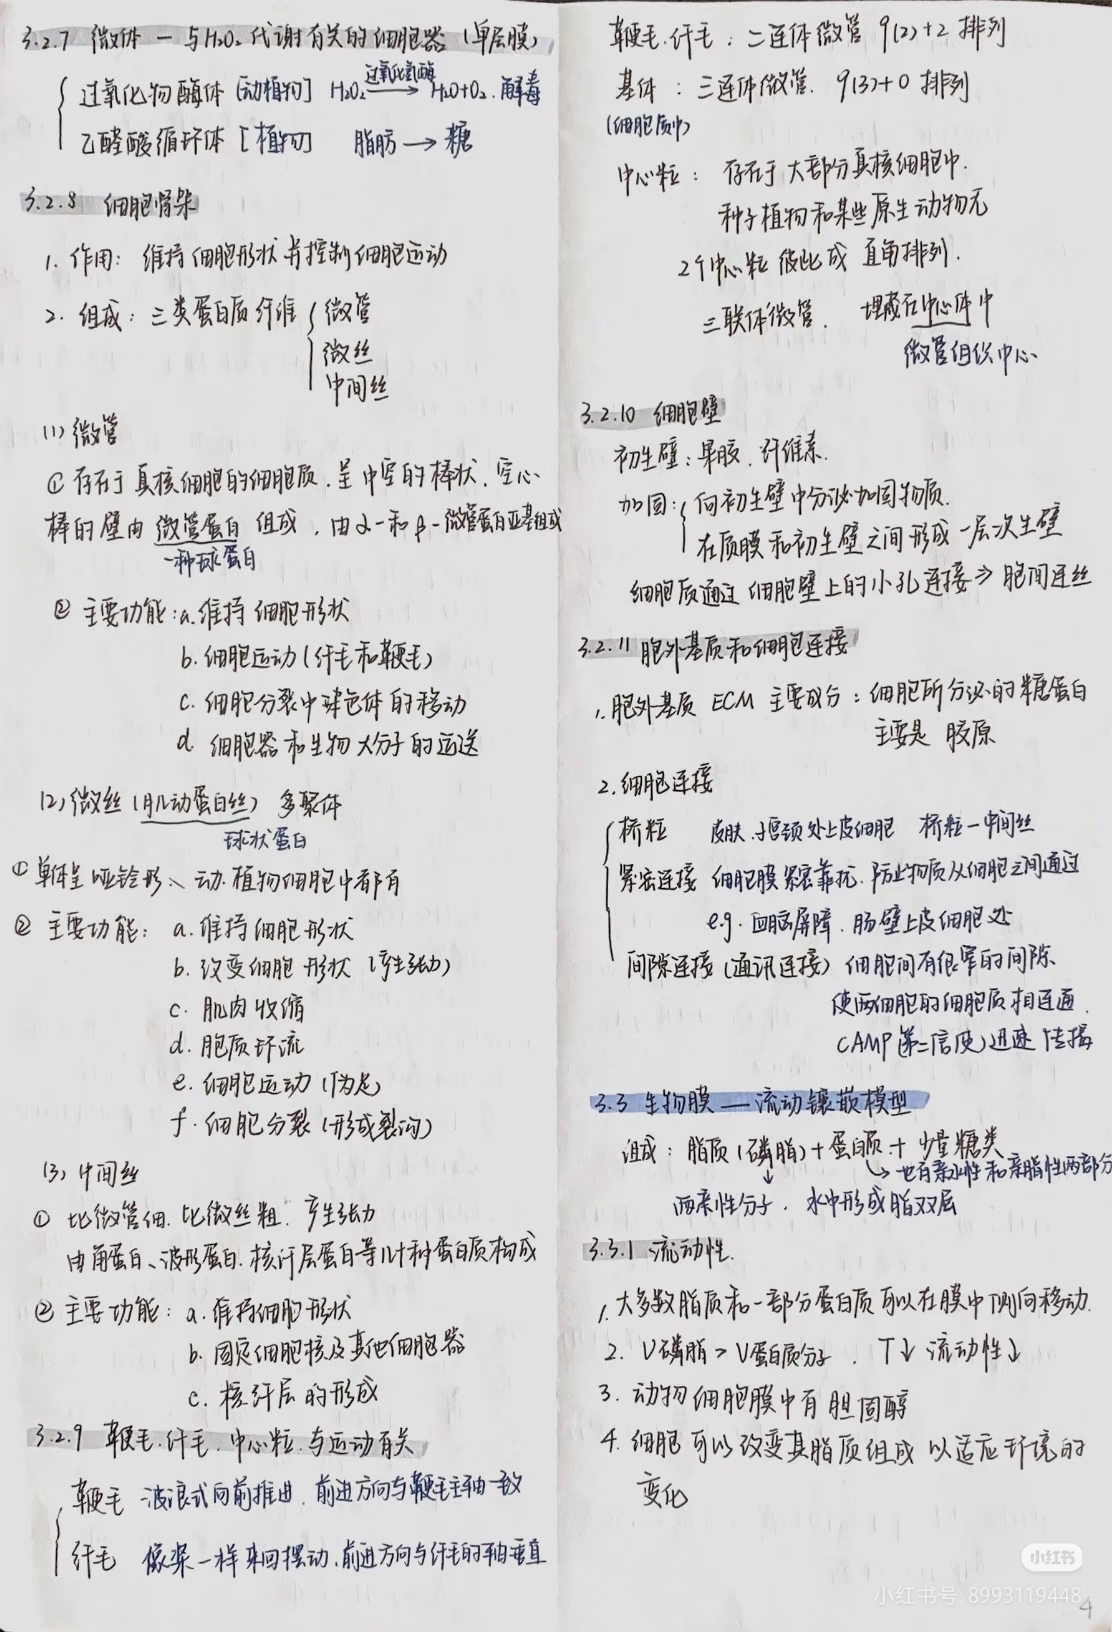 3.2.7 微体 — 与H₂O₂代谢有关的细胞器 (单层膜)
过氧化物酶体 [动植物] H₂O₂ 过氧化氢酶→ H₂O+O₂. 解毒
乙醛酸循环体 [植物] 脂肪 → 糖
3.2.8 细胞骨架
1. 作用: 维持细胞形状并控制细胞运动
2. 组成: 三类蛋白质纤维 微管
微丝
中间丝
(1) 微管
① 存在于真核细胞的细胞质, 呈中空的棒状, 空心
棒的壁由微管蛋白组成, 由α-和β-微管蛋白亚基组成
一种球蛋白
② 主要功能: a. 维持细胞形状
b. 细胞运动 (纤毛和鞭毛)
c. 细胞分裂中球色体的移动
d 细胞器和生物大分子的运送
(2) 微丝 (肌动蛋白丝) 多聚体
球状蛋白
① 单体呈哑铃形、动.植物细胞中都有
② 主要功能: a. 维持细胞形状
b. 改变细胞形状 (产生张力)
c. 肌肉收缩
d. 胞质环流
e. 细胞运动 (伪足)
f. 细胞分裂 (形成裂沟)
(3) 中间丝
① 比微管细. 比微丝粗. 产生张力
由角蛋白、波形蛋白. 核纤层蛋白等几十种蛋白质构成
② 主要功能: a. 维持细胞形状
b. 固定细胞核及其他细胞器
c. 核纤层的形成
3.2.9 鞭毛. 纤毛. 中心粒. 与运动有关
鞭毛 波浪式向前推进. 前进方向与鞭毛主轴一致
纤毛 像桨一样来回摆动. 前进方向与纤毛的轴垂直
鞭毛. 纤毛: 二连体微管 9(2)+2 排列
基体: 三连体微管. 9(3)+0 排列
(细胞质中)
中心粒: 存在于大部分真核细胞中.
种子植物和某些原生动物无
2个中心粒彼此成直角排列.
三联体微管. 埋藏在中心体中
微管组织中心
3.2.10 细胞壁
初生壁: 果胶. 纤维素.
加固: 向初生壁中分泌加固物质.
在质膜和初生壁之间形成一层次生壁
细胞质通过细胞壁上的小孔连接⇒胞间连丝
3.2.11 胞外基质和细胞连接
1. 胞外基质 ECM 主要成分: 细胞所分泌的糖蛋白
主要是 胶原
2. 细胞连接
桥粒 皮肤. 子宫颈处上皮细胞 桥粒—中间丝
紧密连接 细胞膜紧密靠拢. 防止物质从细胞之间通过
e.g. 血脑屏障. 肠壁上皮细胞处
间隙连接 (通讯连接) 细胞间有很窄的间隙
使两细胞的细胞质相连通.
CAMP (第二信使) 迅速传播
3.3 生物膜 — 流动镶嵌模型
组成: 脂质 (磷脂) + 蛋白质 + 少量糖类
↳ 也有亲水性和亲脂性两部分
两亲性分子. 水中形成脂双层
3.3.1 流动性.
1. 大多数脂质和一部分蛋白质可以在膜中侧向移动.
2. V磷脂 > V蛋白质分子. T↓ 流动性↓
3. 动物细胞膜中有胆固醇
4. 细胞可以改变其脂质组成以适应环境的
变化
小红书
小红书号: 8993119448
4